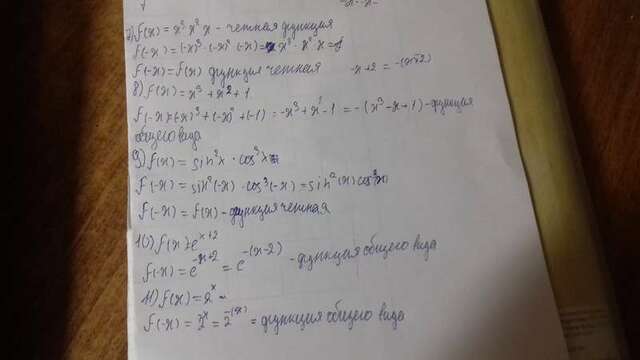 7) f(x) = x³ x² x - четная функция
f(-x) = (-x)³ · (-x)² (-x) = x³ · x² · x =
f(-x) = f(x) функция четная -x+2 = -(x-2)
8) f(x) = x³ + x² + 1
f(-x) = (-x)³ + (-x)² + (-1) = -x³ + x² - 1 = -(x³ - x + 1) - функция
общего вида
9) f(x) = sin²x · cos³x
f(-x) = sin²(-x) · cos³(-x) = sin²(x) cos³x
f(-x) = f(x) - функция четная
10) f(x) = e^(x+2)
f(-x) = e^(-x+2) = e^(-(x-2)) - функция общего вида
11) f(x) = 2^x -
f(-x) = 2^(-x) = 2^(-(x)) = функция общего вида